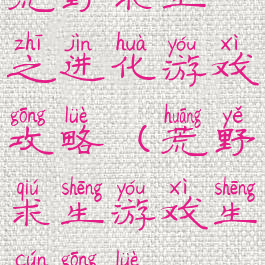 荒野求生
zhī jìn huà yóu xì
之进化游戏
gōng lüè huāng yě
攻略(荒野
qiú shēng yóu xì shēng
求生游戏生
cún gōng lüè